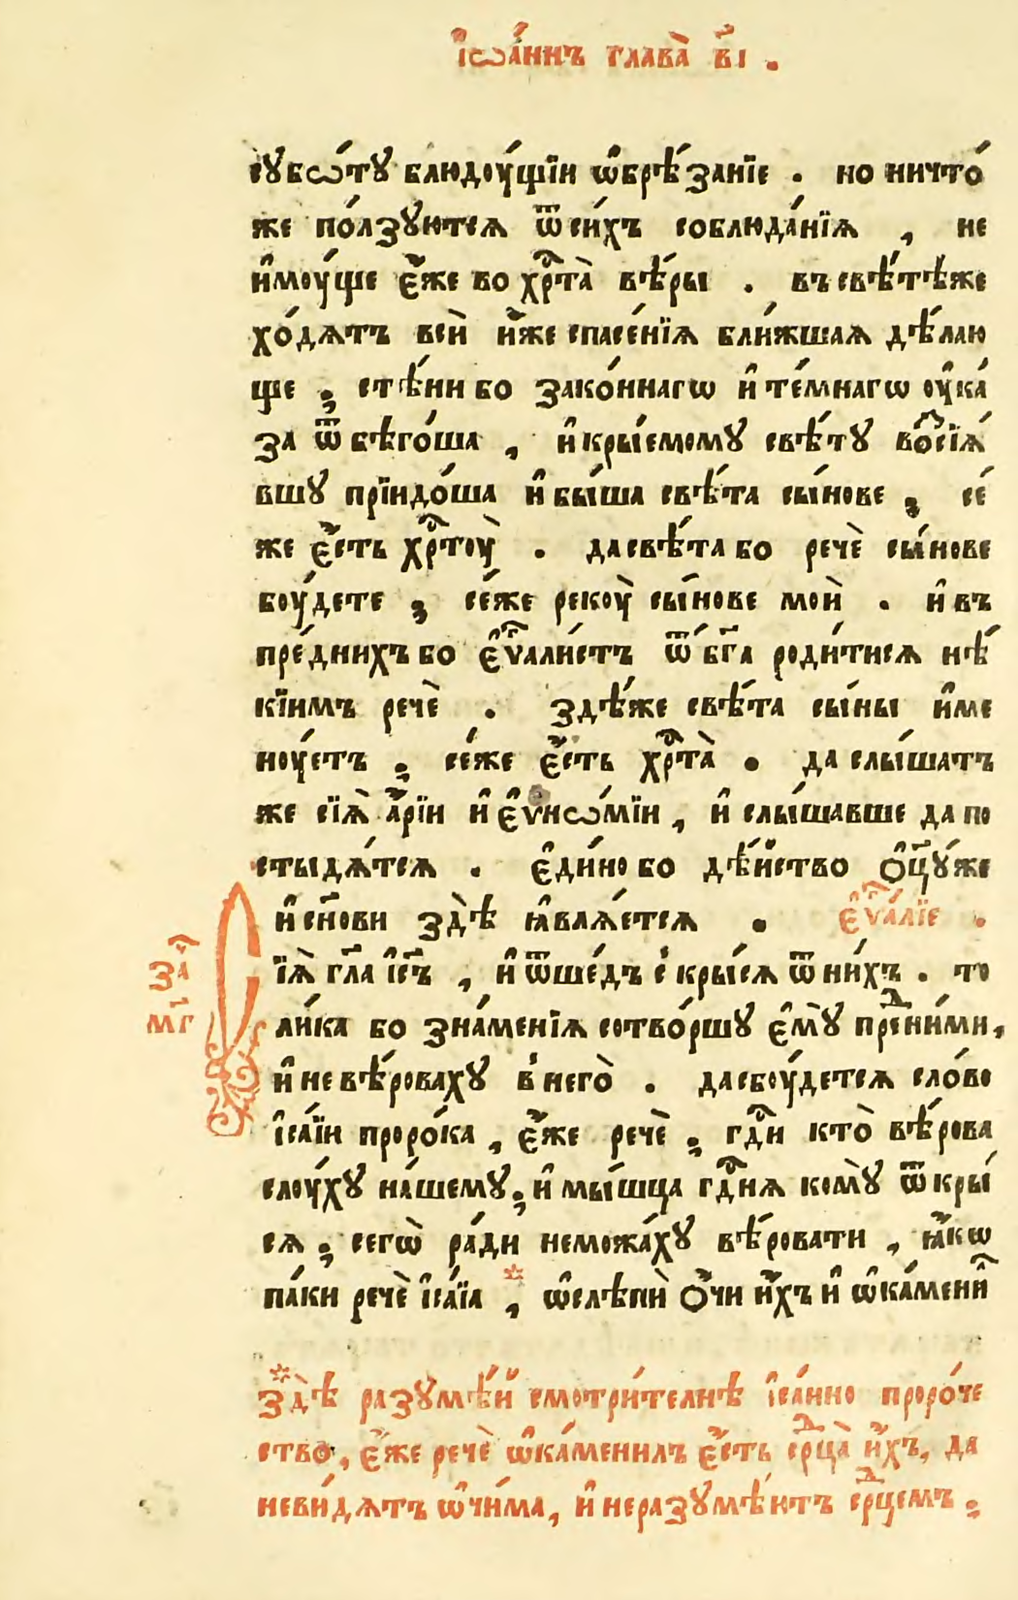 І҆ѡа́ннъ глава̀ в҃і .
сꙋбѡ́тꙋ блюдоу́щїи ѡ҆брѣ́занїе . но ничто́
же по́лзꙋютсѧ ѿ си́хъ соблюда́нїѧ , не
и҆моу́ще є҆́же во хрⷭ҇та̀ вѣ́ры . въ свѣ́тѣже
хо́дѧтъ всѝ и҆́же спасе́нїѧ бли́жшаѧ дѣ́лаю
ще ; стѣ́ни бо зако́ннагѡ и҆ те́мнагѡ оу҆ка́
за ѿбѣго́ша , и҆ кры́емомꙋ свѣ́тꙋ воⷥсїѧ́
вшꙋ прїидо́ша и҆ бы́ша свѣ́та сы́нове ; се́
же є҆́сть хрⷭ҇тоу̀ . да свѣ́та бо речѐ сы́нове
боу́дете ; се́же рекоу̀ сы́нове моѝ . и҆ въ
пре́днихъ бо є҆ѵⷢ҇али́стъ ѿ бг҃а роди́тисѧ нѣ́
кїимъ речѐ . здѣ́же свѣ́та сы́ны и҆ме
ноу́етъ ; се́же є҆́сть хрⷭ҇та̀ . да слы́шатъ
же сїѧ̀ а҆́рїи и҆ є҆ѵнѡ́мїи , и҆ слы́шавше да по
стыдѧ́тсѧ . є҆ди́но бо дѣ́йство ѻ҆ц҃ꙋже
и҆ сн҃ови здѣ̀ ꙗ҆влѧ́етсѧ . є҆ѵⷢ҇а́лїе .
заⷱ҇
м҃г
Сїѧ̀ гл҃а і҆с҃ъ , и҆ ѿше́дъ скры́сѧ ѿ ни́хъ . то
ли́ка бо зна́менїѧ сотво́ршꙋ є҆мꙋ̀ преⷣни́ми ,
и҆ не вѣ́ровахꙋ в него̀ . да сбоу́детсѧ сло́во
і҆са́їи проро́ка , є҆́же речѐ ; гдⷭ҇и кто̀ вѣ́рова
слоу́хꙋ на́шемꙋ ; и҆ мы́шца гдⷭ҇нѧ комꙋ̀ ѿкры́
сѧ ; сегѡ̀ ра́ди неможа́хꙋ вѣ́ровати , ꙗ҆́кѡ
па́ки речѐ і҆са́їа , * ѡ҆слѣпѝ ѻ҆́чи и҆́хъ и҆ ѡ҆ка́мениⷧ҇
* здѣ̀ разꙋмѣ́й смотри́телнѣ і҆са́инно проро́че
ство , є҆́же речѐ ѡ҆ка́менилъ є҆́сть срⷣца̀ и҆́хъ , да
неви́дѧтъ ѡ҆чи́ма , и҆ неразꙋмѣ́ютъ срⷣцемъ ;